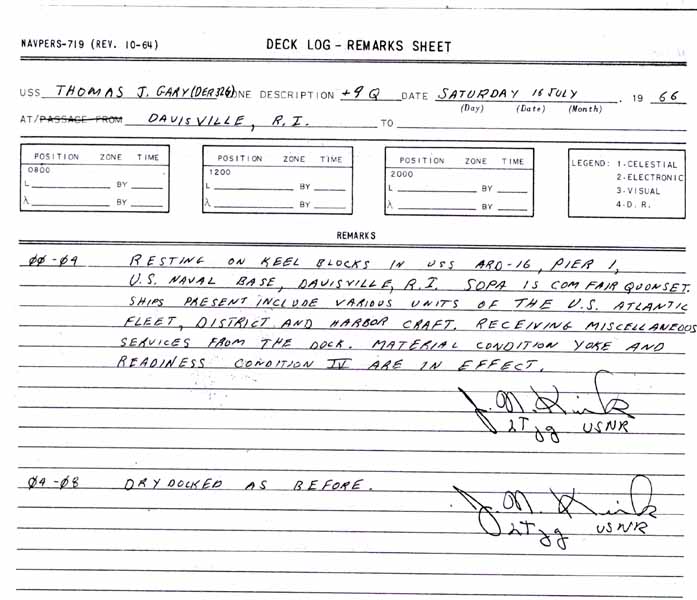 NAVPERS-719 (REV. 10-64) DECK LOG - REMARKS SHEET
USS THOMAS J. GARY (DER 326) ZONE DESCRIPTION +4 Q DATE SATURDAY 16 JULY , 19 66
(Day) (Date) (Month)
AT/PASSAGE FROM DAVISVILLE, R.I. TO
POSITION ZONE TIME
0800
L BY
λ BY
POSITION ZONE TIME
1200
L BY
λ BY
POSITION ZONE TIME
2000
L BY
λ BY
LEGEND: 1-CELESTIAL
2-ELECTRONIC
3-VISUAL
4-D.R.
REMARKS
00-04 RESTING ON KEEL BLOCKS IN USS ARD-16, PIER 1,
U.S. NAVAL BASE, DAVISVILLE, R.I. SOPA IS COM FAIR QUONSET.
SHIPS PRESENT INCLUDE VARIOUS UNITS OF THE U.S. ATLANTIC
FLEET, DISTRICT AND HARBOR CRAFT. RECEIVING MISCELLANEOUS
SERVICES FROM THE DOCK. MATERIAL CONDITION YOKE AND
READINESS CONDITION IV ARE IN EFFECT.
J. M. Kirk
LTjg USNR
04-08 DRYDOCKED AS BEFORE.
J. M. Kirk
LTjg USNR